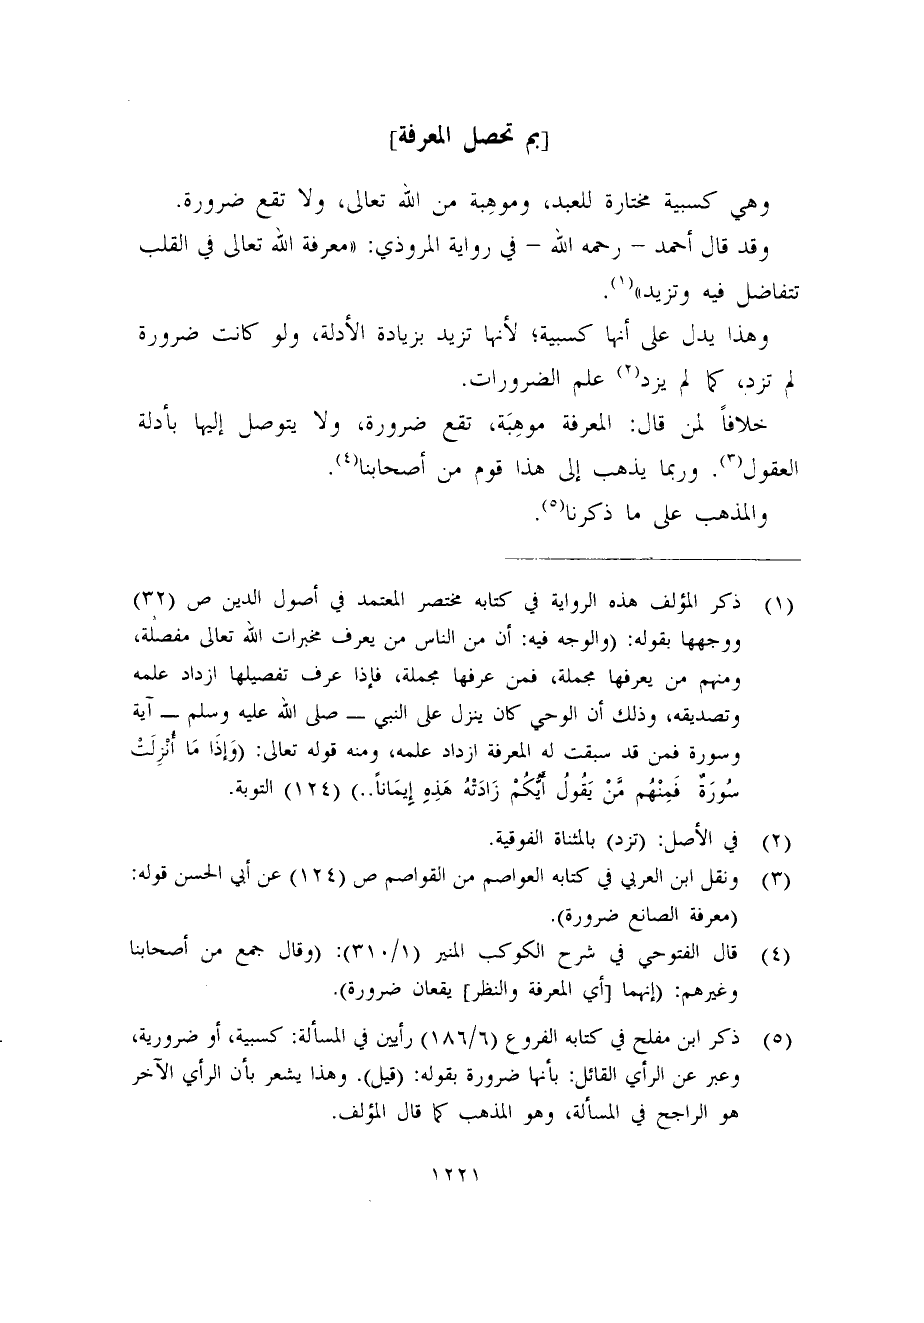 [بم تحصل المعرفة]
وهي كسبية مختارة للعبد، وموهِبة من الله تعالى، ولا تقع ضرورة.
وقد قال أحمد – رحمه الله – في رواية المروذي: «معرفة الله تعالى في القلب
تتفاضل فيه وتزيد»(١).
وهذا يدل على أنها كسبية؛ لأنها تزيد بزيادة الأدلة، ولو كانت ضرورة
لم تزد، كما لم يزد(٢) علم الضرورات.
خلافاً لمن قال: المعرفة موهِبَة، تقع ضرورة، ولا يتوصل إليها بأدلة
العقول(٣). وربما يذهب إلى هذا قوم من أصحابنا(٤).
والمذهب على ما ذكرنا(٥).
(١) ذكر المؤلف هذه الرواية في كتابه مختصر المعتمد في أصول الدين ص (٣٢)
ووجهها بقوله: (والوجه فيه: أن من الناس من يعرف مخبرات الله تعالى مفصلة،
ومنهم من يعرفها مجملة، فمن عرفها مجملة، فإذا عرف تفصيلها ازداد علمه
وتصديقه، وذلك أن الوحي كان ينزل على النبي – صلى الله عليه وسلم – آية
وسورة فمن قد سبقت له المعرفة ازداد علمه، ومنه قوله تعالى: (وَإِذَا مَا أُنْزِلَتْ
سُورَةٌ فَمِنْهُم مَّنْ يَقُولُ أَيُّكُمْ زَادَتْهُ هَذِهِ إِيمَاناً..) (١٢٤) التوبة.
(٢) في الأصل: (تزد) بالمثناة الفوقية.
(٣) ونقل ابن العربي في كتابه العواصم من القواصم ص (١٢٤) عن أبي الحسن قوله:
(معرفة الصانع ضرورة).
(٤) قال الفتوحي في شرح الكوكب المنير (٣١٠/١): (وقال جمع من أصحابنا
وغيرهم: (إنهما [أي المعرفة والنظر] يقعان ضرورة).
(٥) ذكر ابن مفلح في كتابه الفروع (١٨٦/٦) رأيين في المسألة: كسبية، أو ضرورية،
وعبر عن الرأي القائل: بأنها ضرورة بقوله: (قيل). وهذا يشعر بأن الرأي الآخر
هو الراجح في المسألة، وهو المذهب كما قال المؤلف.
١٢٢١